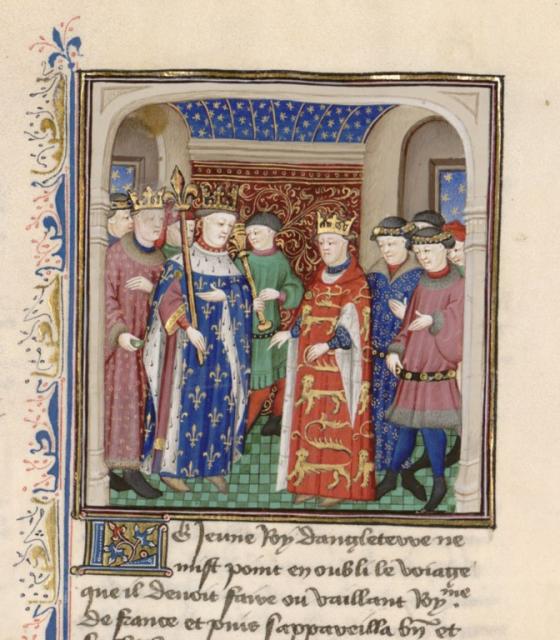 Le Jeune Roy dangleterre ne
mist point en oubli le voiage
que il devoit faire ou vaillant Roy.me
de france et puis sappareilla b̄n et